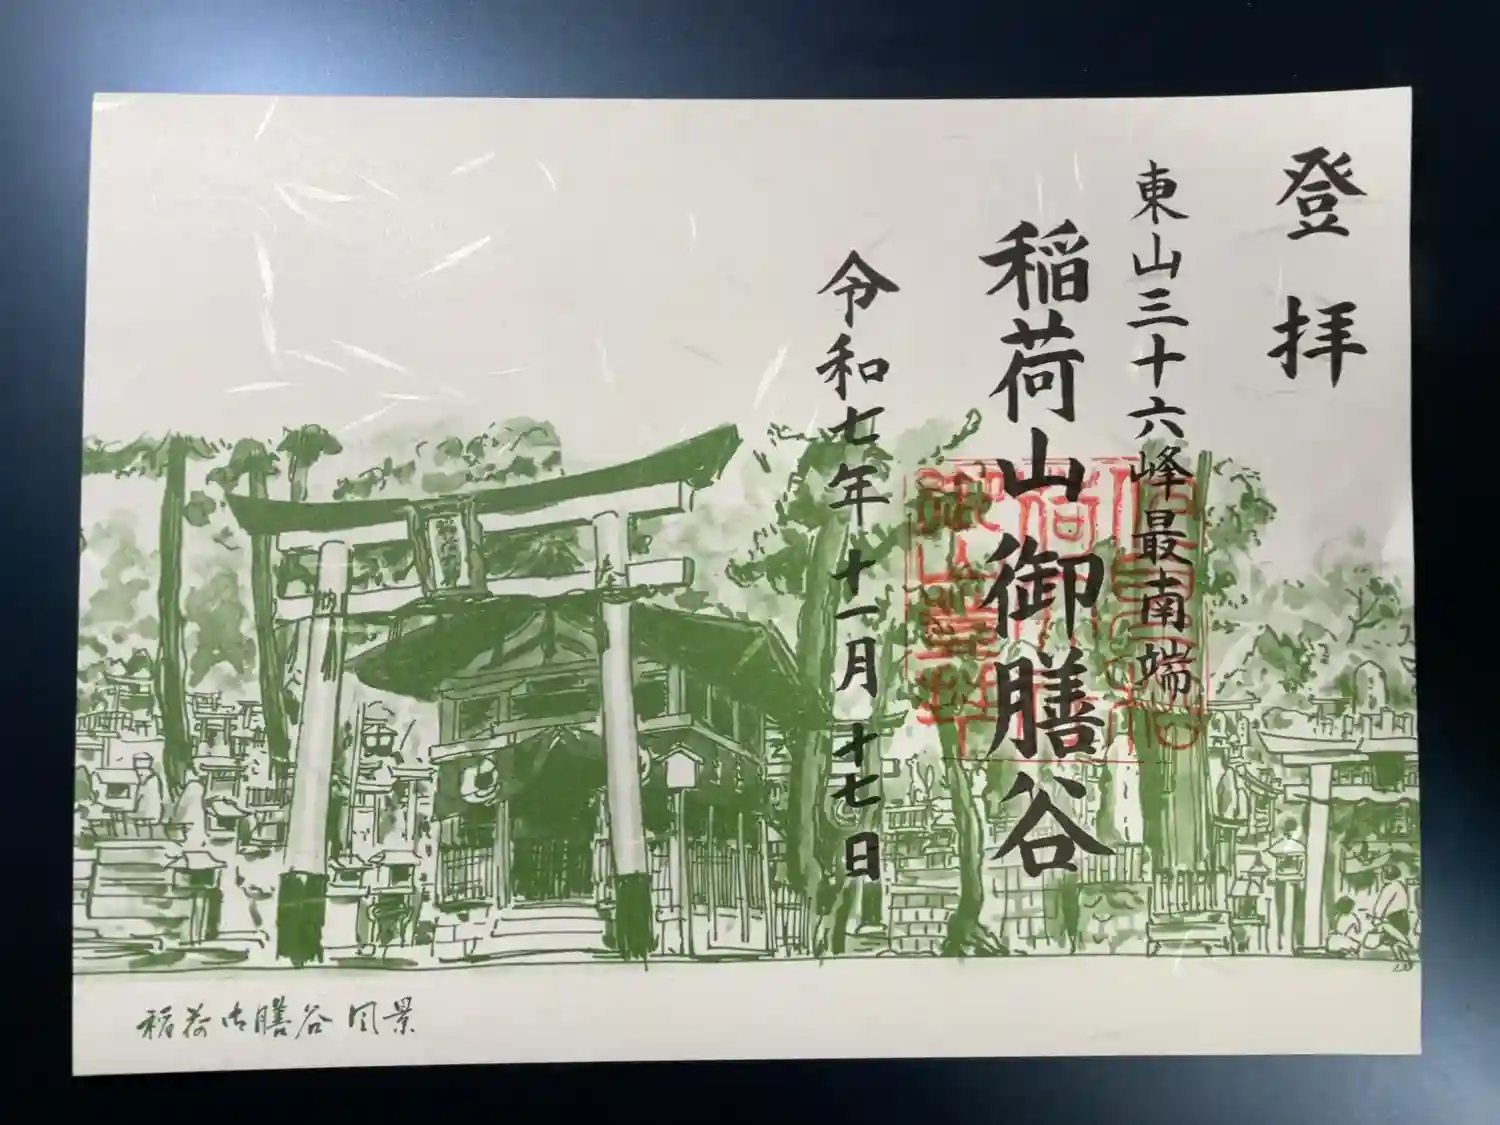 登拝
東山三十六峰最南端
稲荷山御膳谷
令和七年十一月十七日
稲荷御膳谷風景